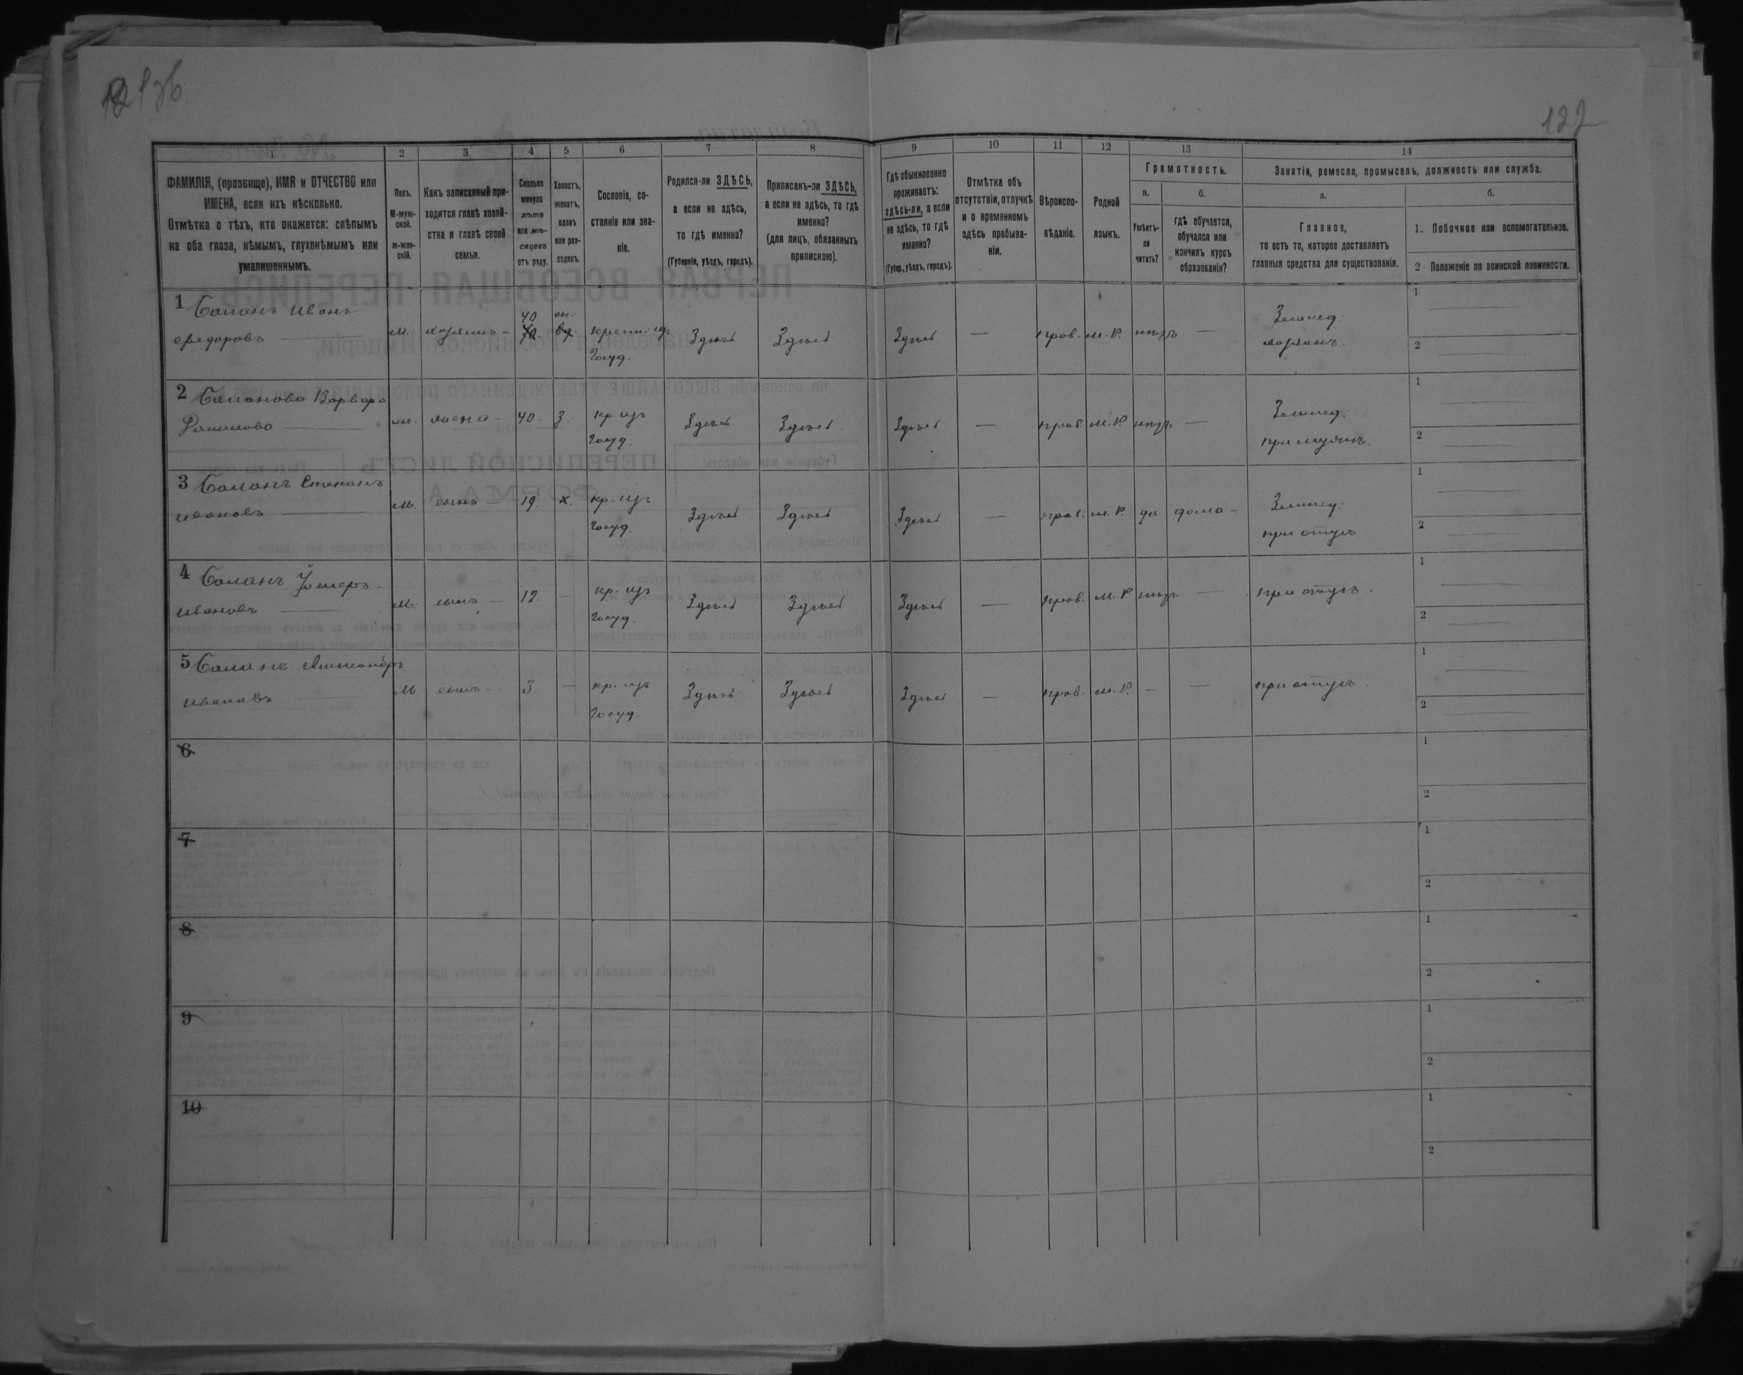 122
1 2 3 4 5 6 7 8 9 10 11 12 13 14
ФАМИЛІЯ, (прозвище), ИМЯ и ОТЧЕСТВО или
ИМЕНА, если ихъ нѣсколько.
Отмѣтка о тѣхъ, кто окажется: слѣпымъ
на оба глаза, нѣмымъ, глухонѣмымъ или
умалишеннымъ.
Полъ.
М-муж-
ской.
ж-жен-
скій.
Какъ записанный при-
ходится главѣ хозяй-
ства и главѣ своей
семьи.
Сколько
минуло
лѣтъ
или мѣ-
сяцевъ
отъ роду.
Холостъ,
женатъ,
вдовъ
или раз-
веденъ.
Сословіе, со-
стояніе или зва-
ніе.
Родился-ли ЗДѢСЬ,
а если не здѣсь,
то гдѣ именно?
(Губернія, уѣздъ, городъ).
Приписанъ-ли ЗДѢСЬ,
а если не здѣсь, то гдѣ
именно?
(для лицъ, обязанныхъ
припискою).
Гдѣ обыкновенно
проживаетъ:
здѣсь-ли, а если
не здѣсь, то гдѣ
именно?
(Губер., уѣздъ, городъ).
Отмѣтка объ
отсутствіи, отлучкѣ
и о временномъ
здѣсь пребыва-
ніи.
Вѣроиспо-
вѣданіе.
Родной
языкъ.
Грамотность.
а.
Умѣетъ-
ли
читать?
б.
гдѣ обучается,
обучался или
кончилъ курсъ
образованія?
Занятія, ремесло, промыселъ, должность или служба.
а.
Главное,
то есть то, которое доставляетъ
главныя средства для существованія.
б.
1. Побочное или вспомогательное.
2 Положеніе по воинской повинности.
1 Саланъ Иванъ
Федоровъ м. хозяинъ 40 Здѣсь Здѣсь Здѣсь — прав. м. р. — Землед.
Госуд. хозяинъ.
1
2
2 Саланова Варвара
жена 40 з. кр. изъ Здѣсь Здѣсь Здѣсь — прав. м. р. — Землед.
Госуд. при мужѣ.
1
2
3 Саланъ Степанъ
Ивановъ м. сынъ 19 х. кр. изъ Здѣсь Здѣсь Здѣсь — прав. м. р. да дома Землед.
Госуд. при отцѣ
1
2
4 Саланъ
Ивановъ м. сынъ 12 — кр. изъ Здѣсь Здѣсь Здѣсь — прав. м. р. — при отцѣ
Госуд.
1
2
5 Саланъ Александръ
Ивановъ м сынъ 3 — кр. изъ Здѣсь Здѣсь Здѣсь — прав. м. р. — — при отцѣ
Госуд.
1
2
6
1
2
7
1
2
8
1
2
9
1
2
10
1
2